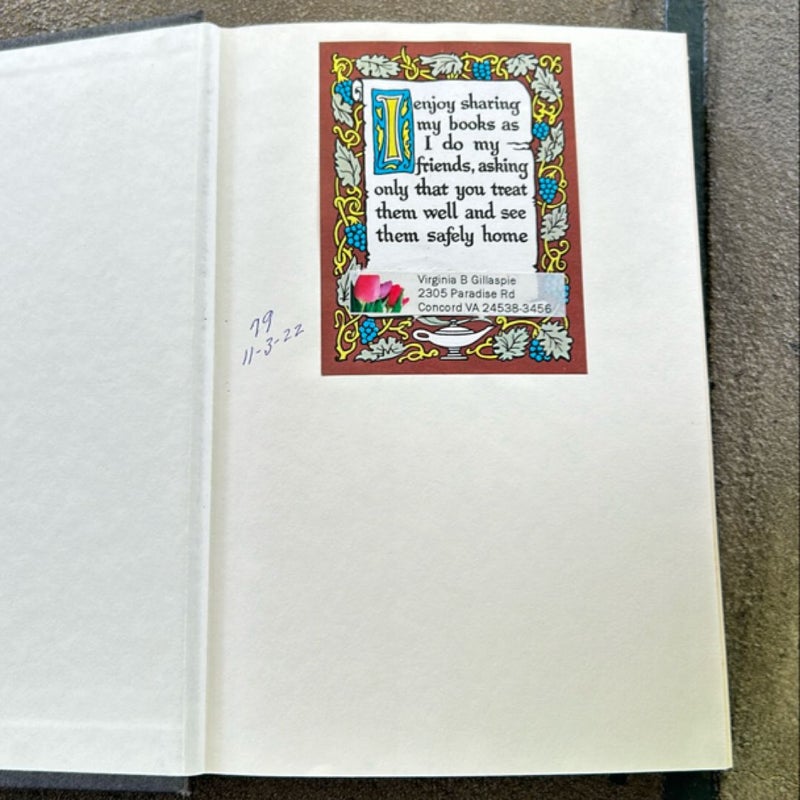 I enjoy sharing
my books as
I do my
friends, asking
only that you treat
them well and see
them safely home
Virginia B Gillaspie
2305 Paradise Rd
Concord VA 24538-3456
79
11-3-22